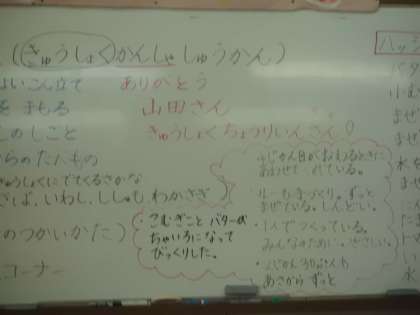 (きゅうしょくかんしゃしゅうかん)
ないこん立て ありがとう
を まもる 山田さん
しのしごと きゅうしょくちょうりいんさん
らのたべもの
ゅうしょくにでてくるさかな
さば、いわし、ししゃも、わかさぎ
のつかいかた)
コーナー
こむぎことバターが
ちゃいろになって
びっくりした。
4じかん目がおわるときに
あわせてくれている。
・ルーも手づくり。ずっと
まぜている。しんどい。
・1人でつくっている。
みんなのために。やさしい。
あさからずっと
バタ
小む
まぜ